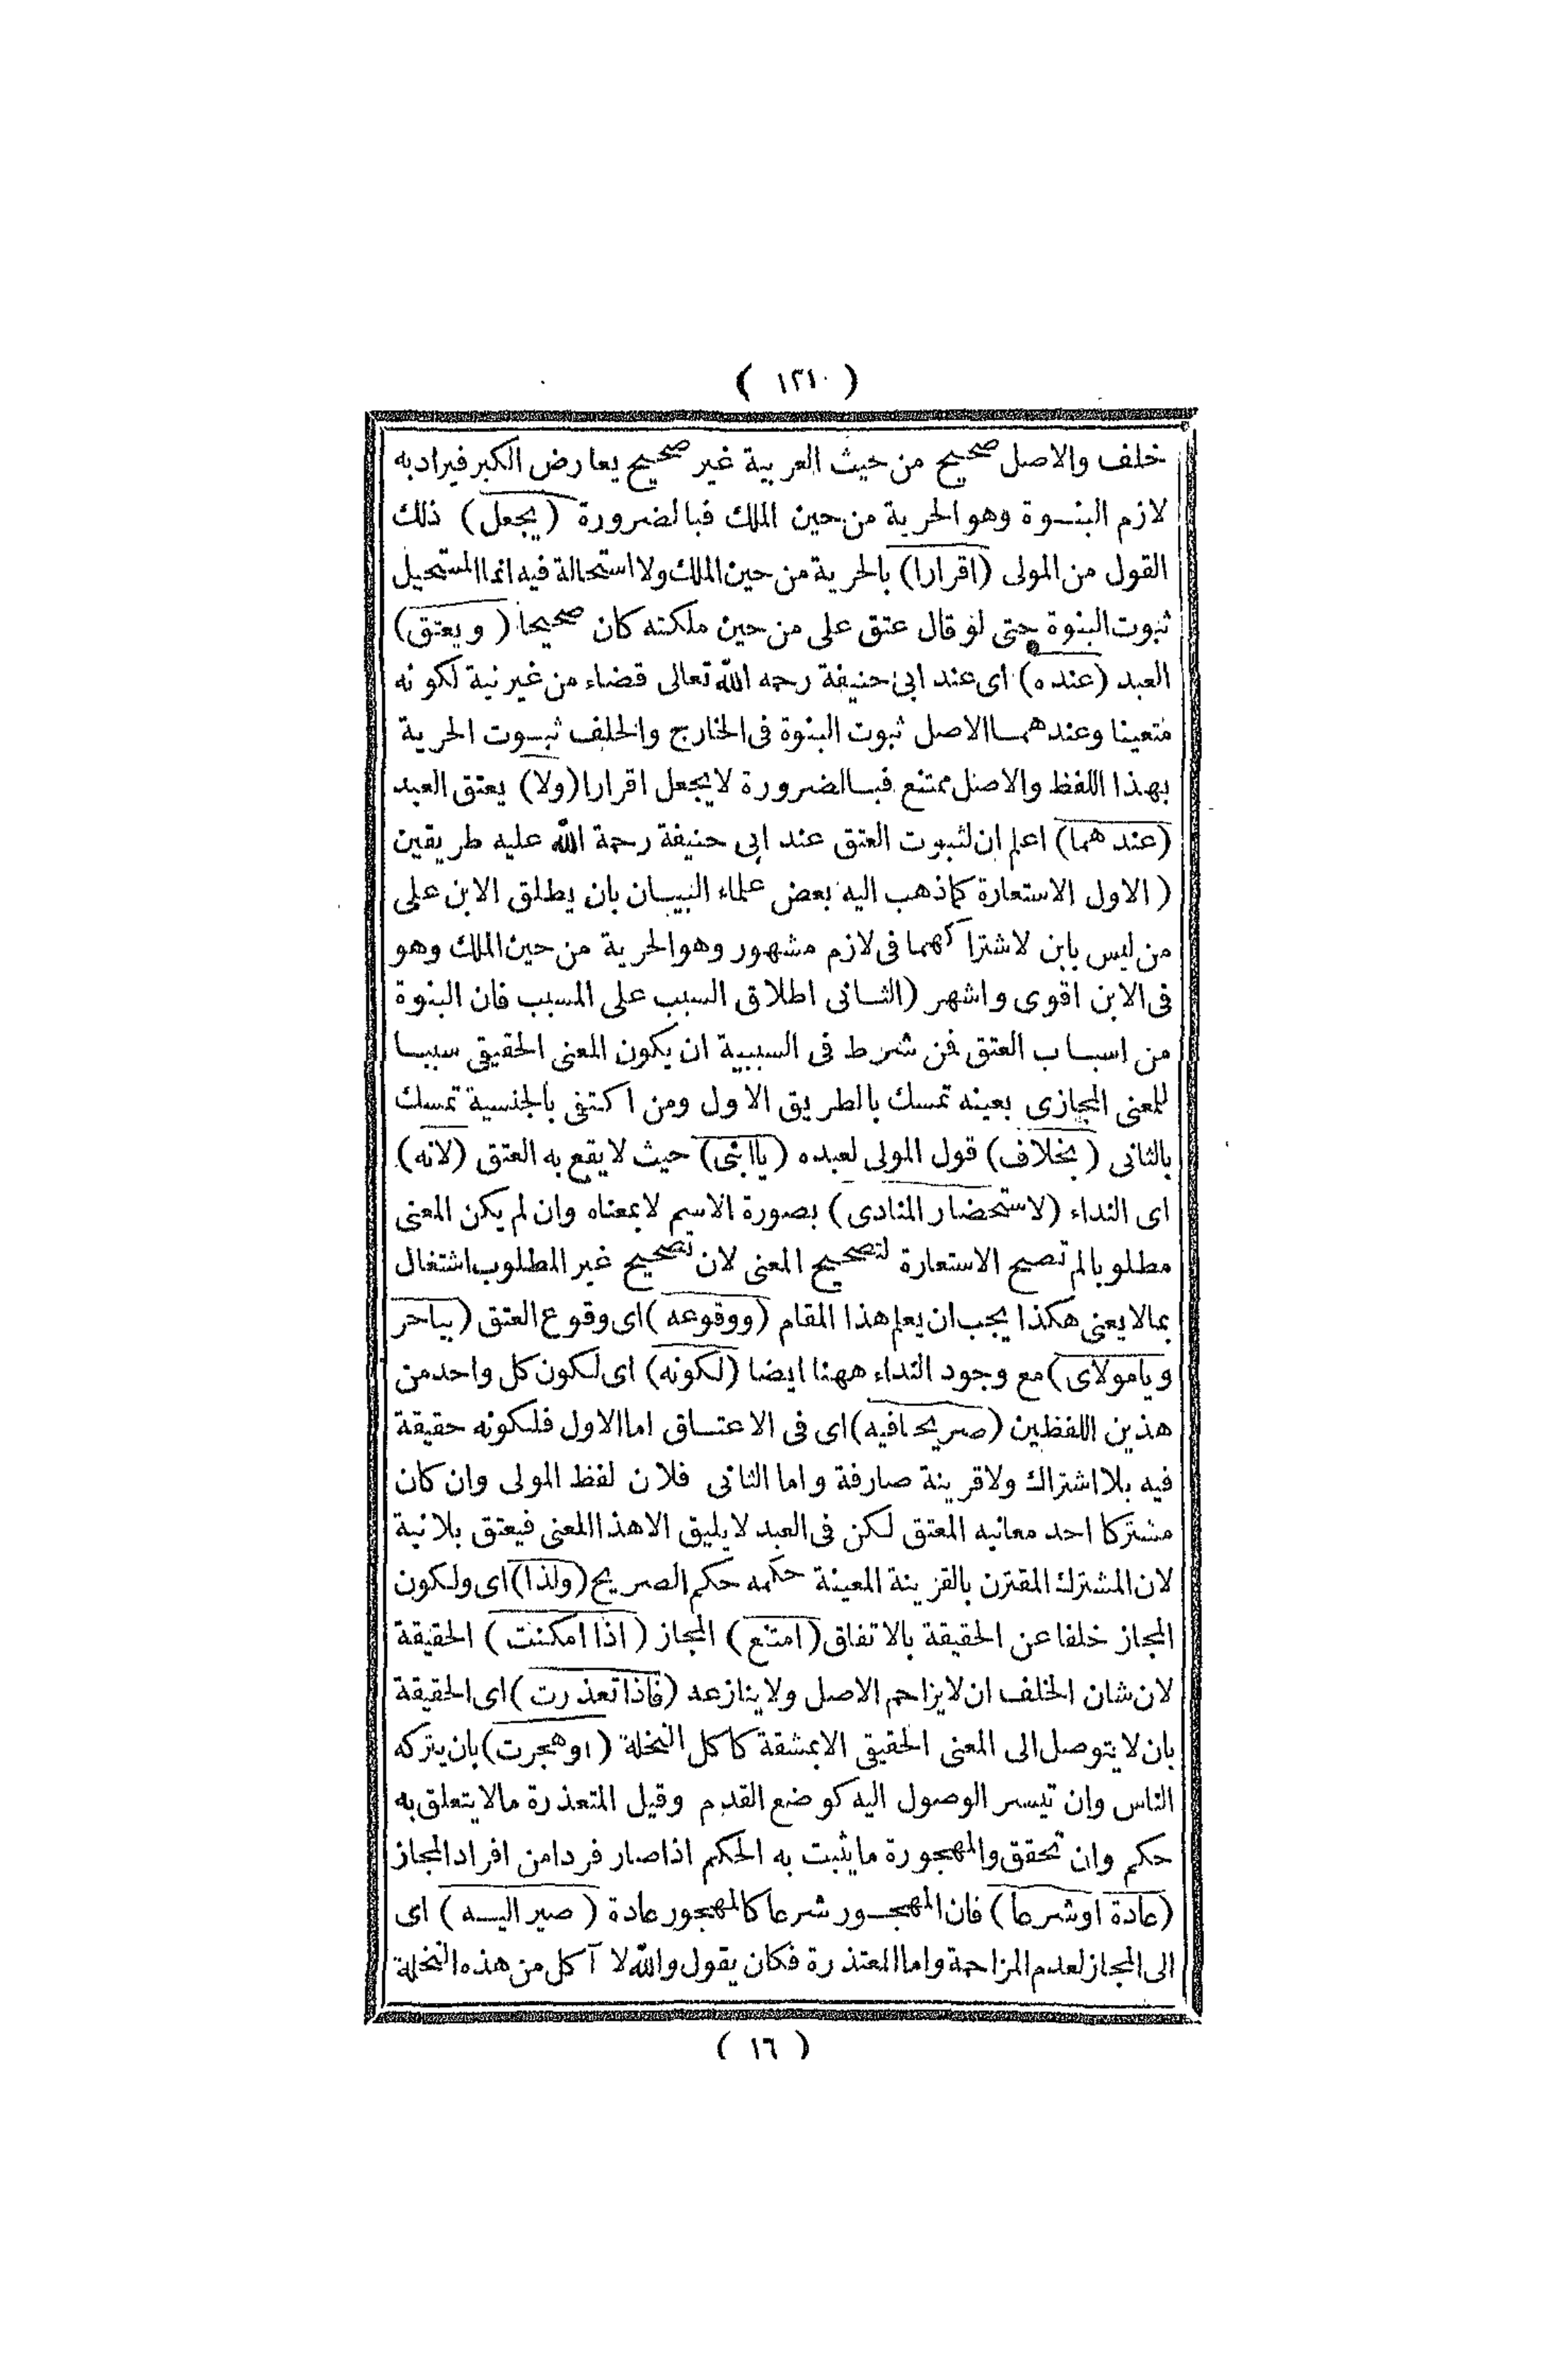 ( ١٢١٠ )
خلف والاصل صحيح من حيث العربية غير صحيح يعارض الكبر فيراد به
لازم البنوة وهو الحرية من حين الملك فبالضرورة (يجعل) ذلك
القول من المولى (اقرارا) بالحرية من حين الملك ولا استحالة فيه انما المستحيل
ثبوت البنوة حتى لو قال عتق على من حين ملكته كان صحيحا (ويعتق)
العبد (عنده) اى عند ابى حنيفة رحمه الله تعالى قضاء من غير نية لكونه
متعينا وعندهما الاصل ثبوت البنوة فى الخارج والخلف ثبوت الحرية
بهذا اللفظ والاصل ممتنع فبالضرورة لا يجعل اقرارا (ولا) يعتق العبد
(عندهما) اعلم ان لثبوت العتق عند ابى حنيفة رحمة الله عليه طريقين
( الاول الاستعارة كما ذهب اليه بعض علماء البيان بان يطلق الابن على
من ليس بابن لاشتراكهما فى لازم مشهور وهو الحرية من حين الملك وهو
فى الابن اقوى واشهر (الثانى اطلاق السبب على المسبب فان البنوة
من اسباب العتق فمن شرط فى السببية ان يكون المعنى الحقيقى سببا
للمعنى المجازى بعينه تمسك بالطريق الاول ومن اكتفى بالجنسية تمسك
بالثانى (بخلاف) قول المولى لعبده (ياابنى) حيث لا يقع به العتق (لانه)
اى النداء (لاستحضار المنادى) بصورة الاسم لا بمعناه وان لم يكن المعنى
مطلوبا لم تصح الاستعارة لتصحيح المعنى لان تصحيح غير المطلوب اشتغال
بمالا يعنى هكذا يجب ان يعلم هذا المقام (ووقوعه) اى وقوع العتق (بياحر
ويامولاى) مع وجود النداء ههنا ايضا (لكونه) اى لكون كل واحد من
هذين اللفظين (صريحا فيه) اى فى الاعتاق اما الاول فلكونه حقيقة
فيه بلا اشتراك ولا قرينة صارفة واما الثانى فلان لفظ المولى وان كان
مشتركا احد معانيه المعتق لكن فى العبد لا يليق الا هذا المعنى فيعتق بلا نية
لان المشترك المقترن بالقرينة المعينة حكمه حكم الصريح (ولذا) اى ولكون
المجاز خلفا عن الحقيقة بالاتفاق (امتنع) المجاز (اذا امكنت) الحقيقة
لان شان الخلف ان لا يزاحم الاصل ولا ينازعه (فاذا تعذرت) اى الحقيقة
بان لا يتوصل الى المعنى الحقيقى الا بمشقة كاكل النخلة (او هجرت) بان يتركه
الناس وان تيسر الوصول اليه كوضع القدم وقيل المتعذرة مالا يتعلق به
حكم وان تحقق والمهجورة ما يثبت به الحكم اذا صار فردا من افراد المجاز
(عادة او شرعا) فان المهجور شرعا كالمهجور عادة (صير اليه) اى
الى المجاز لعدم المزاحمة واما المعتذرة فكان يقول والله لا آكل من هذه النخلة
( ١٦ )